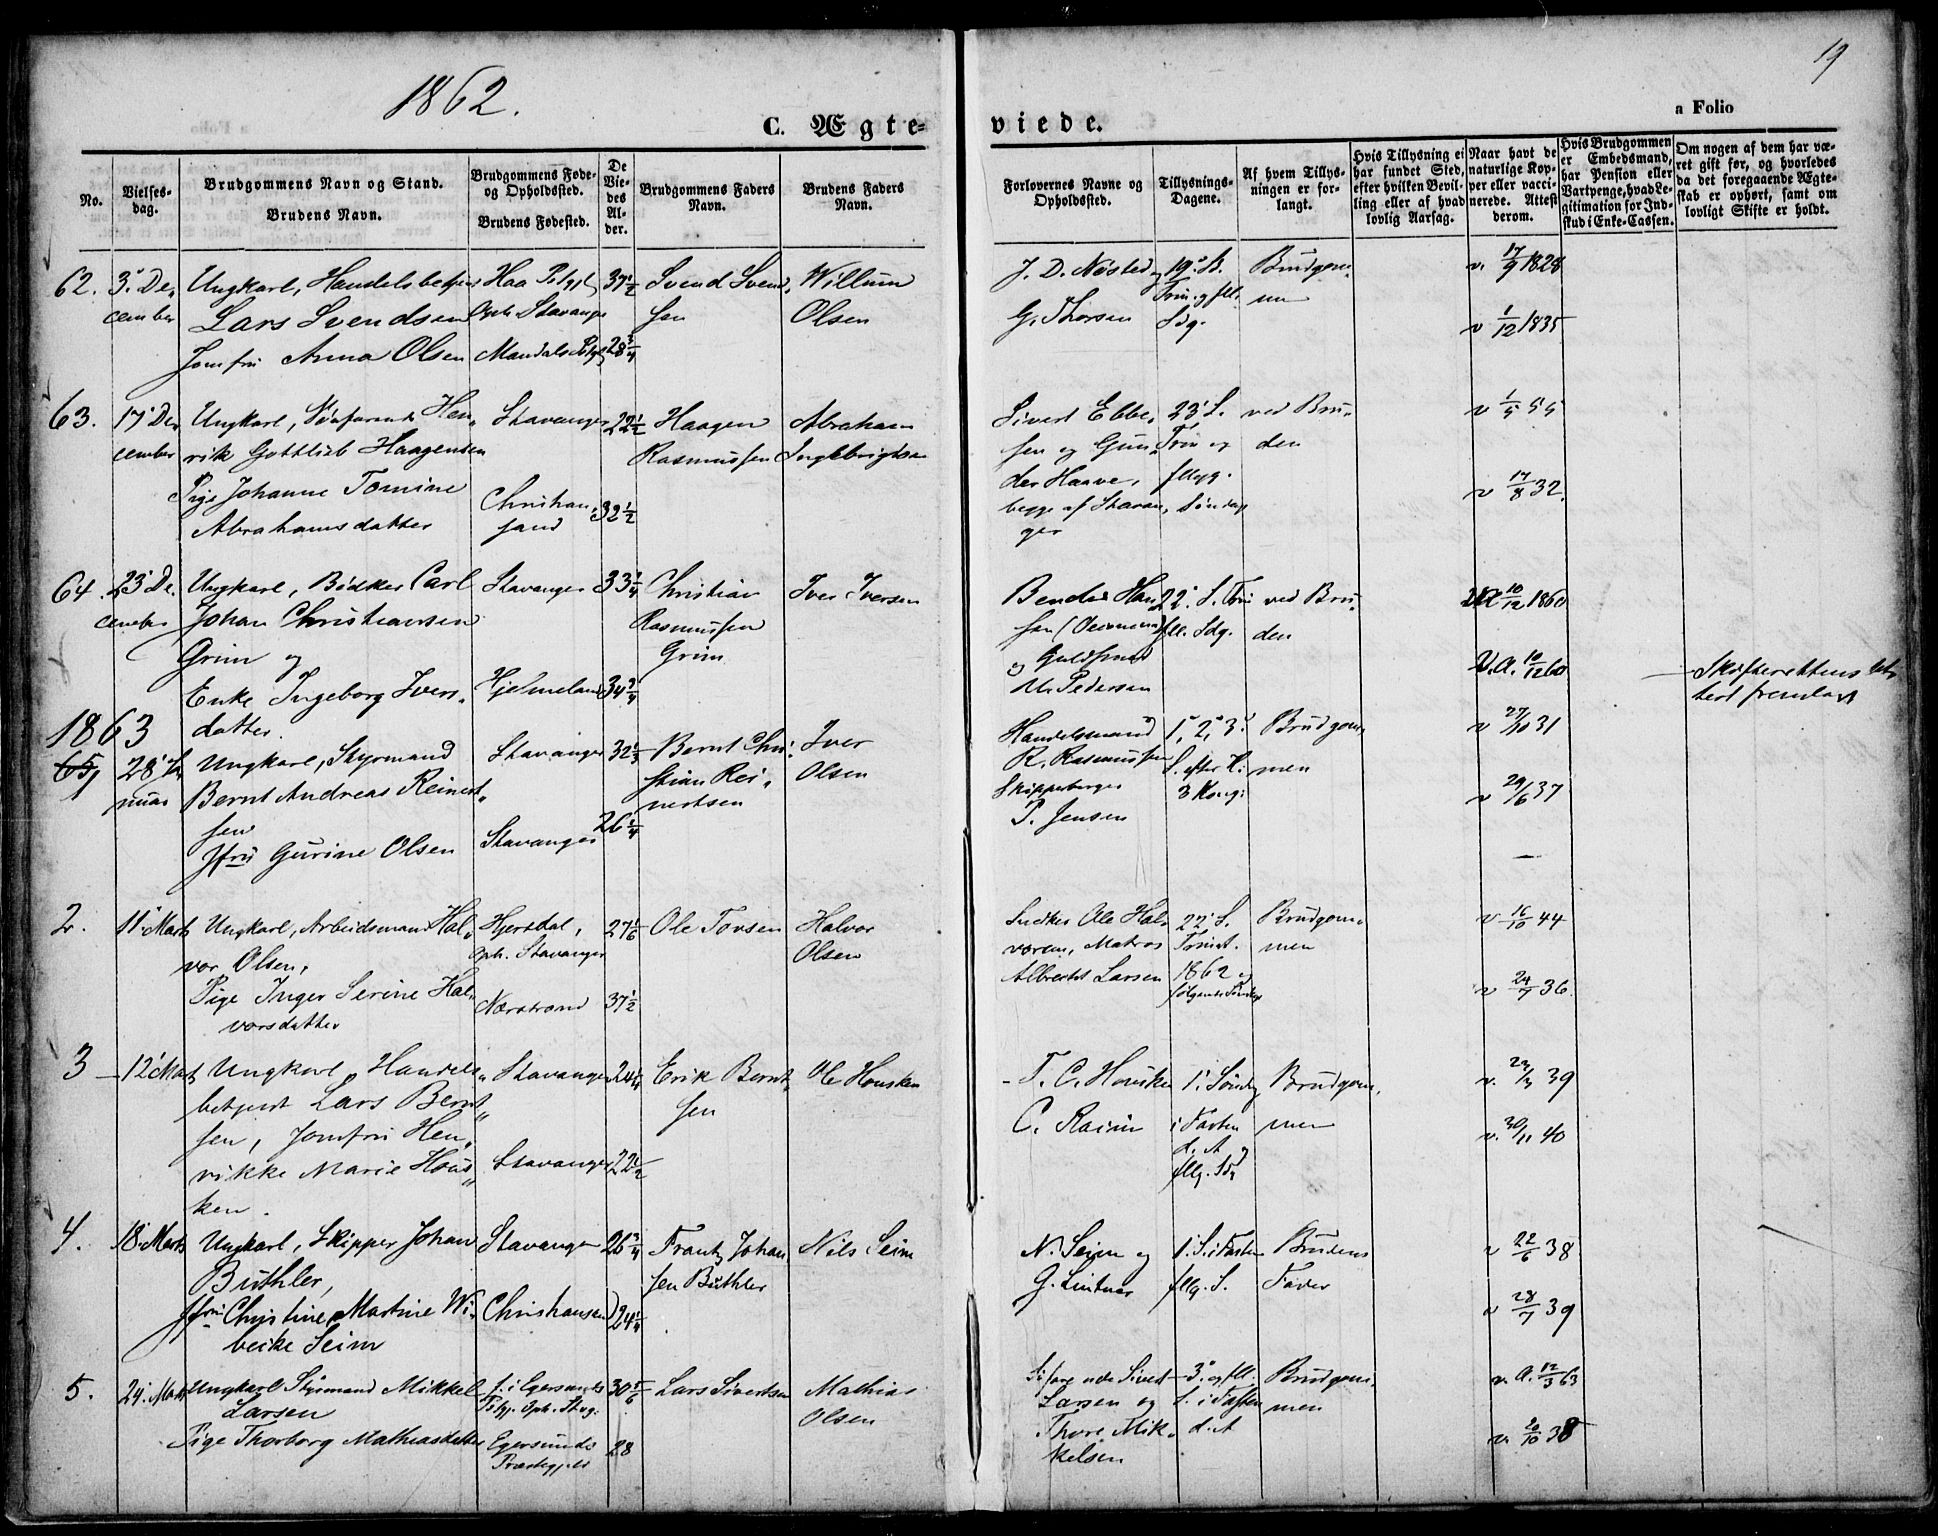 1862.
19
C. Ægte-
viede.
a Folio
No.
Vielses-
dag.
Brudgommens Navn og Stand.
Brudens Navn.
Brudgommens Føde-
og Opholdssted.
Brudens Fødested.
De
Vie-
des
Al-
der.
Brudgommens Faders
Navn.
Brudens Faders
Navn.
Forlovernes Navne og
Opholdssted.
Tillysnings-
Dagene.
Af hvem Tillys-
ningen er for-
langt.
Hvis Tillysning ei
har fundet Sted,
efter hvilken Bevil-
ling eller af hvad
lovlig Aarsag.
Naar havt de
naturlige Kop-
per eller vacci-
nerede. Attest
derom.
Hvis Brudgommen
er Embedsmand,
har Pension eller
Vartpenge, hvad Le-
gitimation for Ind-
skud i Enke-Cassen.
Om nogen af dem har væ-
ret gift før, og hvorledes
da det foregaaende Ægte-
skab er ophørt, samt om
lovligt Skifte er holdt.
62.
3' De-
cember
Ungkarl, Handelsbetjent
Lars Svendsen
Jomfru Anna Olsen
Haa Pstgjl
Oph. Stavanger
Mandals Pstgj
37 1/2
28 3/4
Svend Svend-
sen
Willum
Olsen
J. D. Nøsted
G. Thorsen
19' S.
Trin. og flg.
Sdg.
Brudgom-
men
v. 17/9 1828
v 1/12 1835
63.
17' De-
cember
Ungkarl, Søfarende Hen-
rik Gottlieb Haagensen
Pige Johanne Tomine
Abrahamsdatter
Stavanger
Christian-
sand
22 1/2
32 1/2
Haagen
Rasmussen
Abraham
Ingebrigtsen
Sivert Ebbe-
sen og Gun-
der Haave,
begge af Stavan-
ger
23' S.
Trin og
fllgg.
Søndag
ved Bru-
den
v 1/5 55
v 17/8 32.
64.
23' De-
cember
Ungkarl, Bødker Carl
Johan Christiansen
Grim og
Enke Ingeborg Ivers-
datter.
Stavanger
Hjelmeland
33 3/4
34 3/4
Christian
Rasmussen
Grim
Iver Iversen
Bender Han-
sen
og Guldsmed
M. Pedersen
22' S. Trin
fll. Sdg.
ved Bru-
den
V.A. 10/12 1860
V.A. 10/12 60
Skifterettens At-
test fremlagt
1863
1
28' Ja-
nuar
Ungkarl, Styrmand
Bernt Andreas Reinert-
sen
Jfru Gurine Olsen
Stavanger
Stavanger
32 1/3
26 1/4
Bernt Chri-
stian Rei-
nertsen
Iver
Olsen
Handelsmand
R. Rasmussen
Skippeborger
P. Jensen
1', 2', 3'
S. efter H.
3 Kong.
Brudgom-
men
v 27/10 31
v 29/6 37
2.
11' Marts
Ungkarl, Arbeidsmand Hal-
vor Olsen,
Pige Inger Serine Hal-
vorsdatter
Hjertdal,
Oph. Stavanger
Nærstrand
27 1/6
37 1/2
Ole Tovsen
Halvor
Olsen
Snedker Ole Hal-
vorsen, Matros
Albrecht Larsen
22' S.
Trinit.
1862 og
følgende Søndag
Brudgom-
men
v 16/10 44
v 24/7 36.
3
12' Marts
Ungkarl Handels-
betjent Lars Bernt-
sen, Jomfru Hen-
rikke Marie Hous-
ken.
Stavanger
Stavanger
24 1/4
22 1/2
Erik Bernt-
sen
Ole Housken
T. C. Housken
C. Raim
1' Søndag
i Fasten
d. A
fllg. Sdg
Brudgom-
men
v. 23/3 39
v. 30/11 40
4.
18' Marts
Ungkarl, Skipper Johan
Büthler,
Jfru Christine Martine Wi-
becke Seim
Stavanger
Christiansand
26 3/4
24 1/4
Frantz Johan-
sen Büthler
Nils Seim
N. Seim og
G. Lintner
1' S. i Fasten
fllg. S.
Brudens
Fader
v 22/6 38
v 28/7 39
5.
24' Marts
Ungkarl Styrmand Mikkel
Larsen
Pige Thorborg Mathiasdatter
f. i Egersunds
Pstgj. Oph. Stvgr.
Egersunds
Præstegjeld
30 5/6
28
Lars Sivertsen
Mathias
Olsen
Søfarende Sivert
Larsen og
Thore Mik-
kelsen
3' og fll.
S. i Fasten
d. A
Brudgom-
men
v. A. 12/3 63
v. 20/10 38